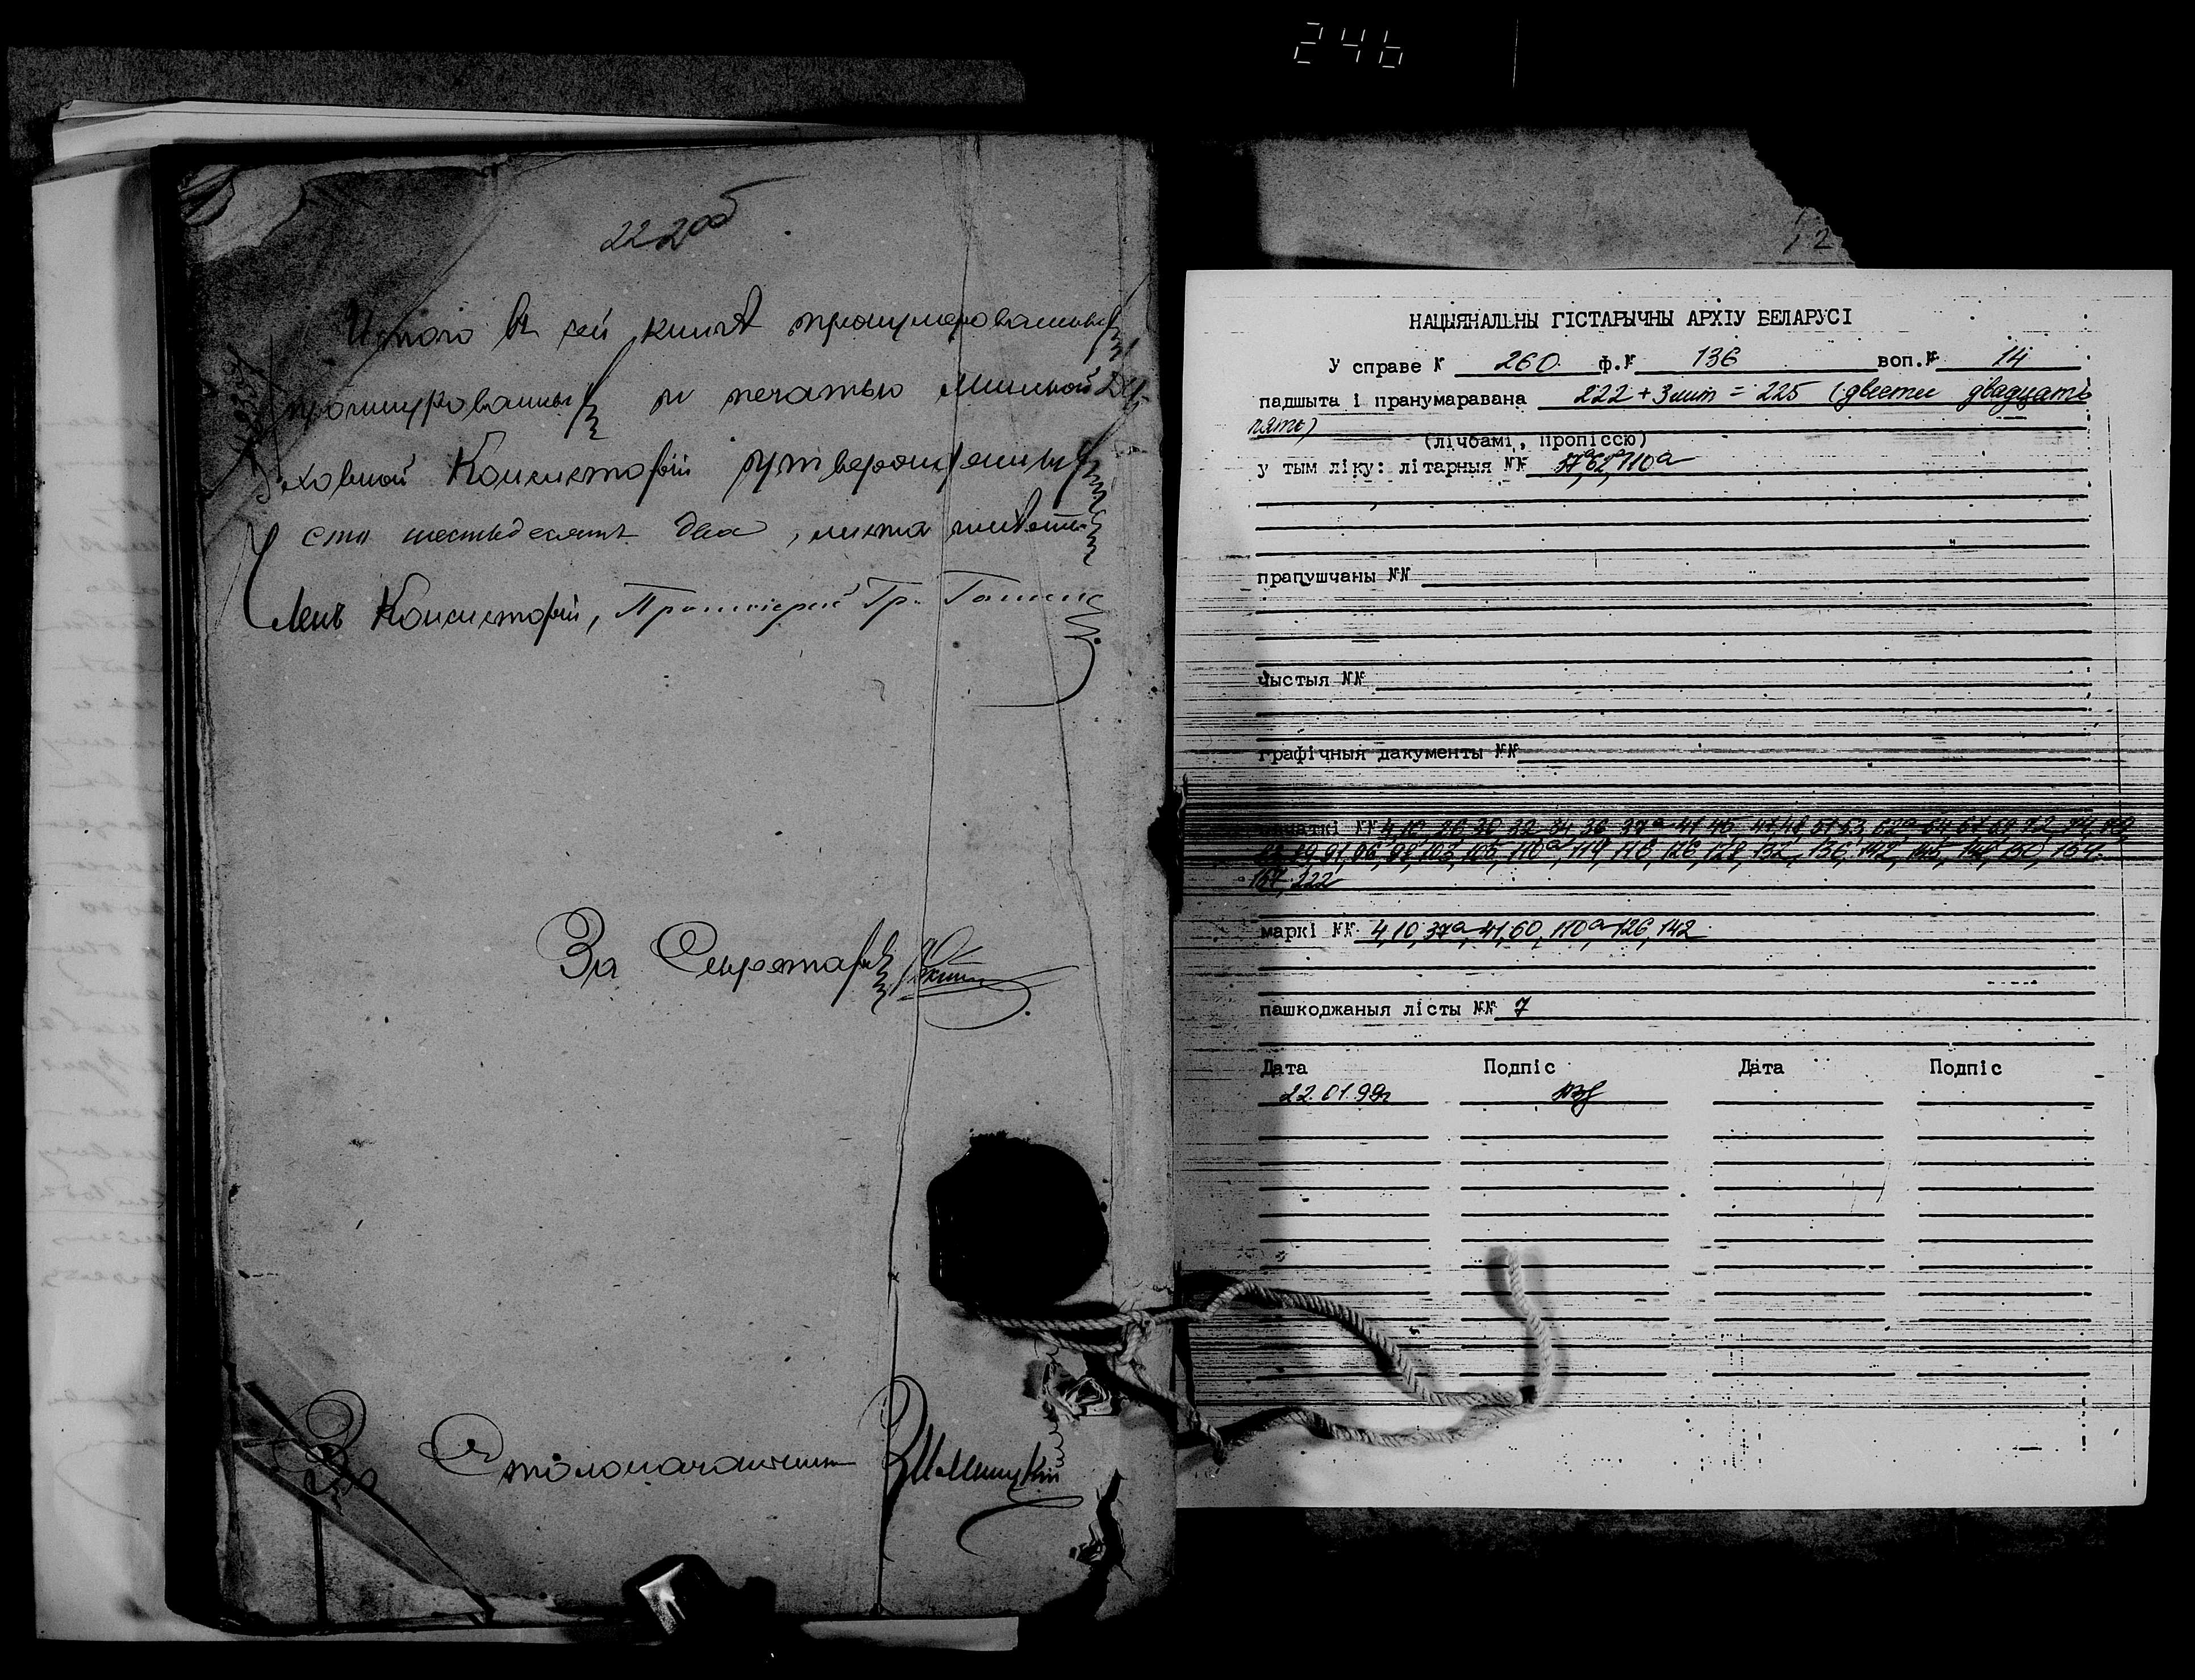 246
222об
Итого въ сей книгѣ пронумерованныхъ
прошнурованныхъ и печатью Минской Ду-
ховной Консисторіи утвержденныхъ
сто шестьдесятъ два, листа
Членъ Консисторіи, Протоіерей Гр.
За Секретаря
За Столоначальника
НАЦЫЯНАЛЬНЫ ГІСТАРЫЧНЫ АРХІУ БЕЛАРУСІ
У справе № 260. ф.№ 136 воп.№ 14
падшыта і пранумаравана 222 + 3лит = 225 (двести двадцать
пять)
(лічбамі, пропіссю)
у тым ліку: літарныя №№ 37а, 62а, 110а
прапушчаны №№
чыстыя №№
графічныя дакументы №№
пячаткі №№ 4, 10, 26, 30, 32, 34, 36, 37а, 41, 45, 47, 48, 51, 53, 62а, 64, 67, 69, 72,
91, 96, 103, 105, 110а, 114, 118, 126, 128, 132, 136, 142, 145, 150, 154,
167, 222
маркі №№ 4, 10, 37а, 41, 60, 110а, 126, 142
пашкоджаныя лісты №№ 7
Дата Подпіс Дата Подпіс
22.01.99г